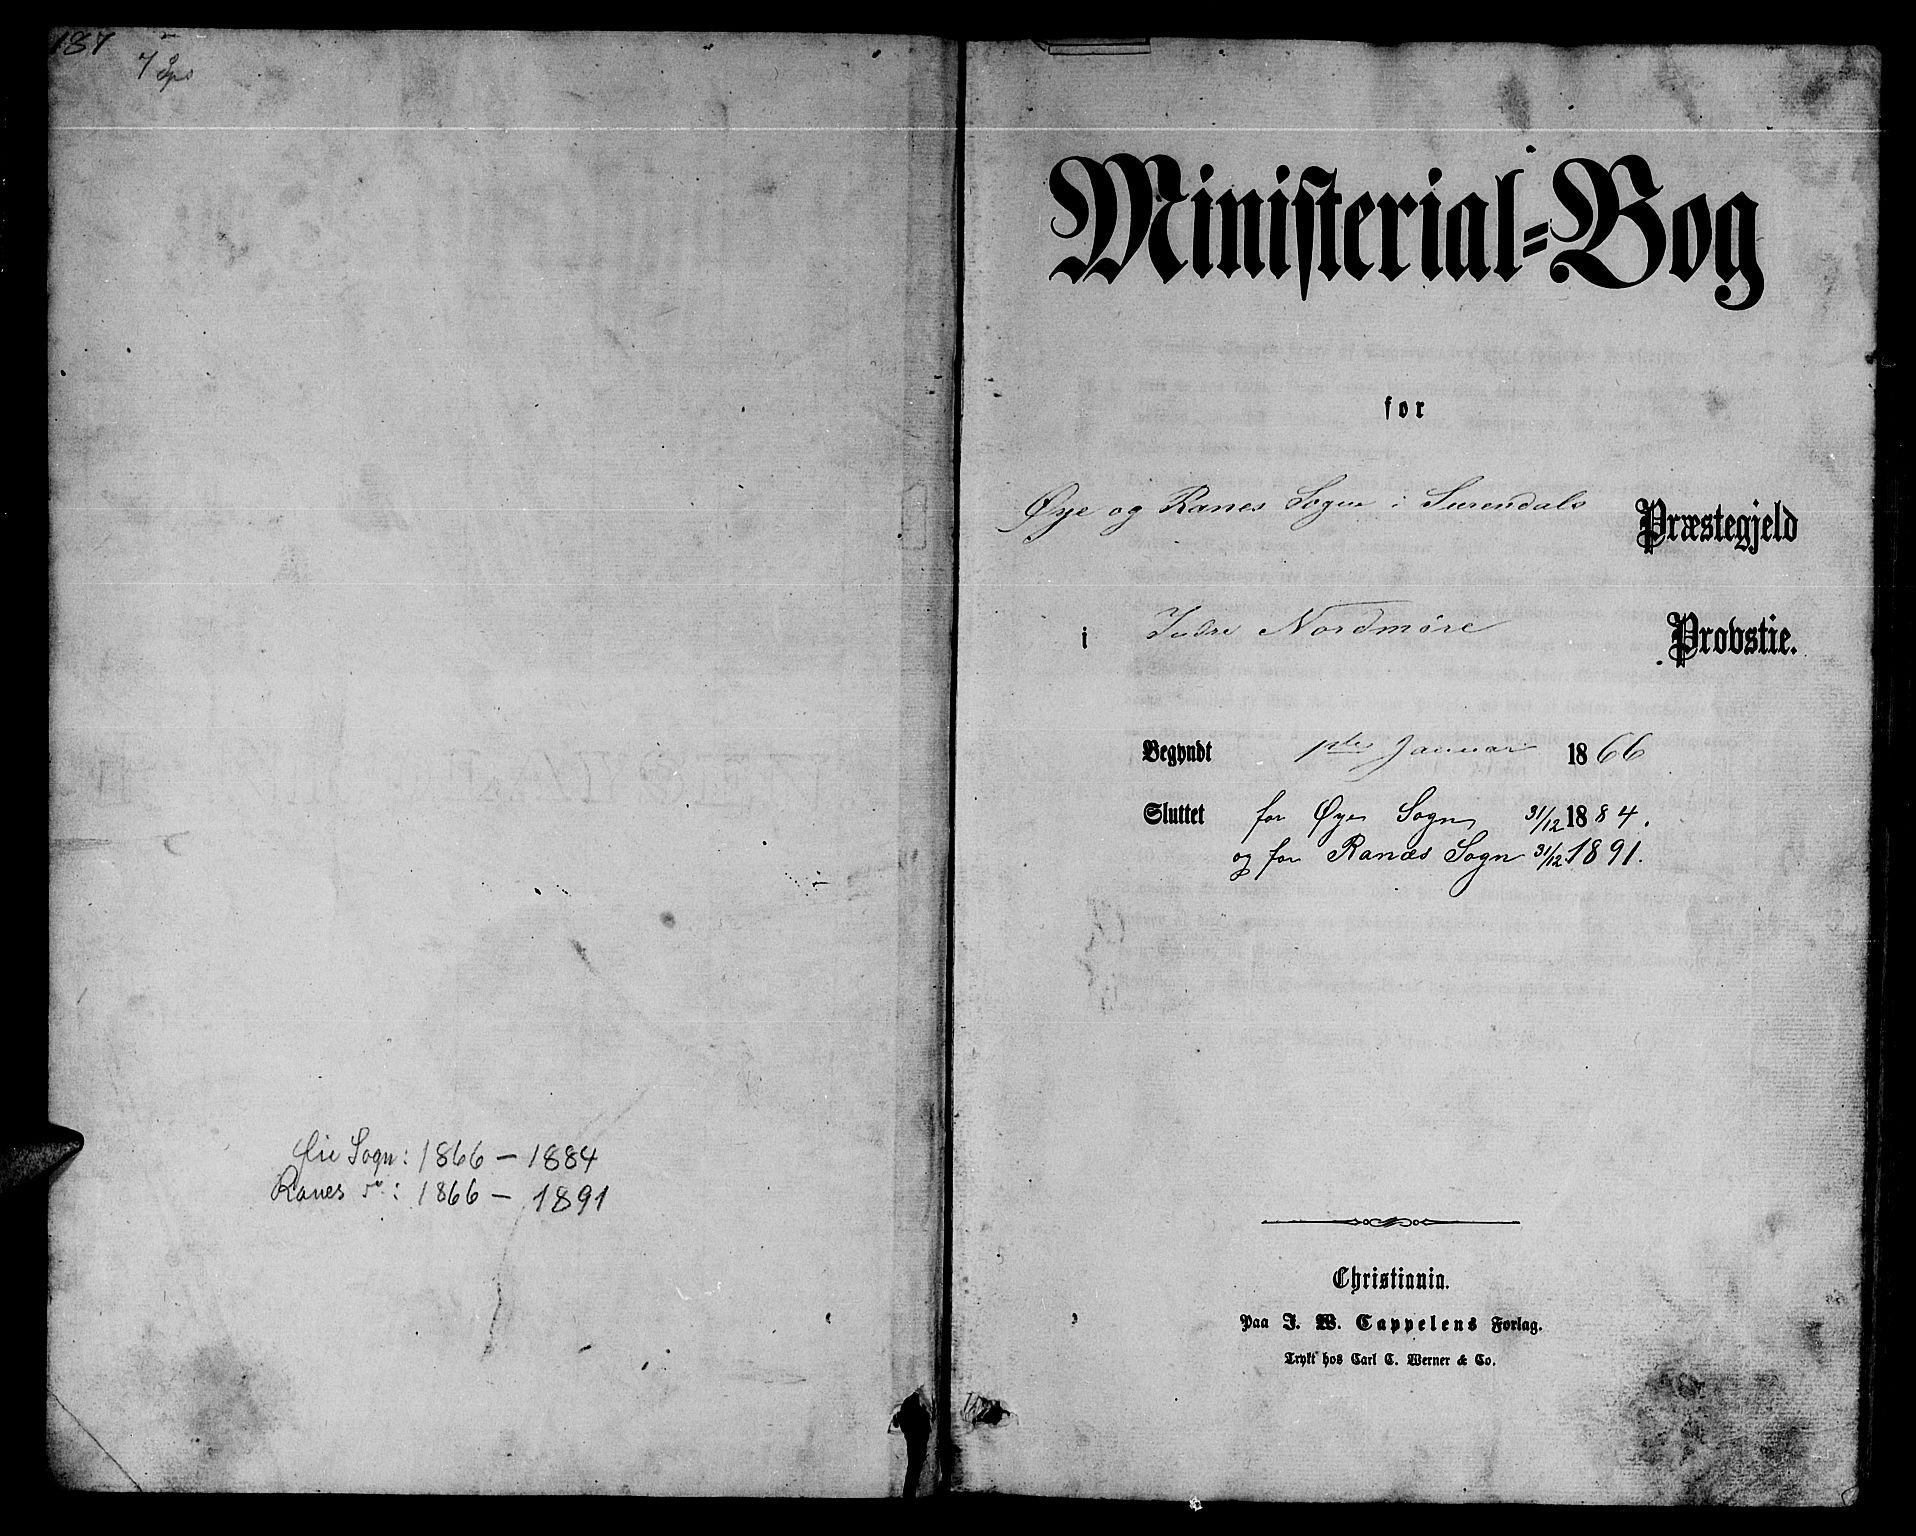 187
7
Øie Sogn: 1866 – 1884
Ranes do: 1866 – 1891
Ministerial-Bog
for
Øye og Ranes Sogne i Surendals Præstegjeld
i Indre Nordmøre Provstie.
Begyndt 1ste Januar 1866
Sluttet for Øye Sogn 31/12 1884.
og for Ranæs Sogn 31/12 1891.
Christiania.
Paa J. W. Cappelens Forlag.
Trykt hos Carl C. Werner & Co.